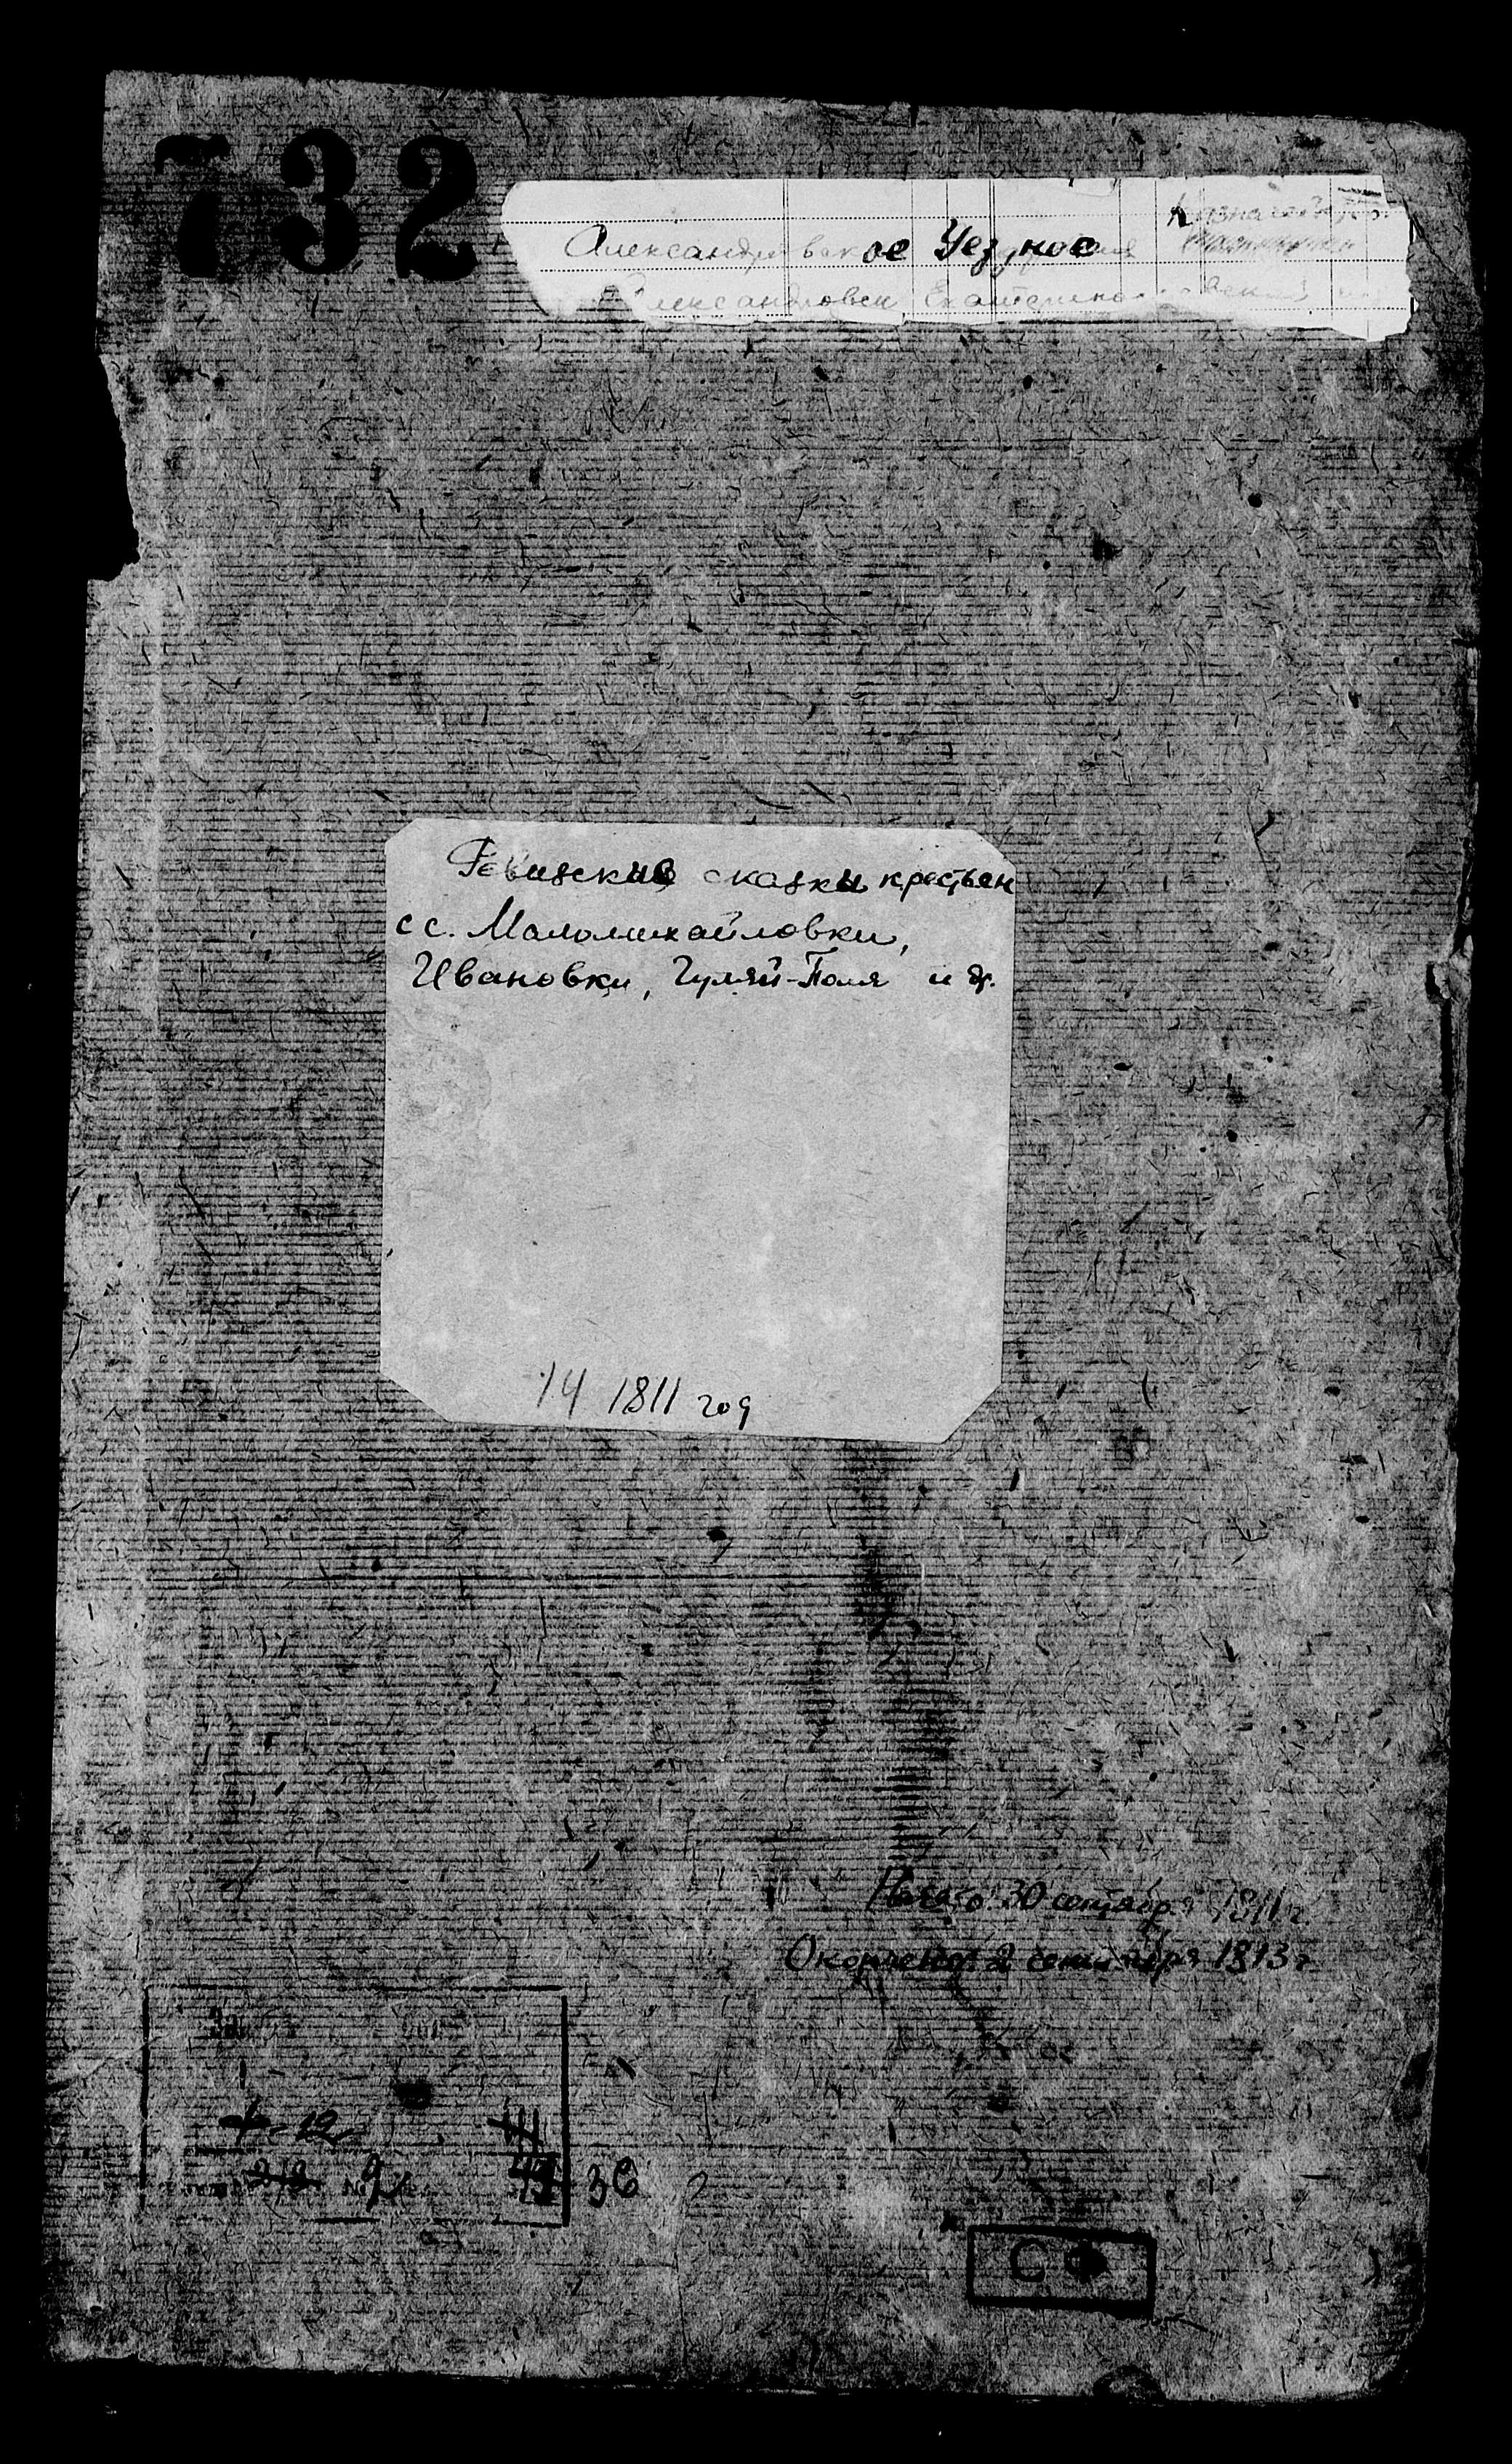 732
Александровское Уездное Казначейство
Александровск Екатерино
Ревизские сказки крестьян
с с. Маломихайловки,
Ивановки, Гуляй-Поля и др.
14 1811 год
Начато: 30 сентября 1811 г.
Окончено: 2 сентября 1813 г.
12
92
36
СФ